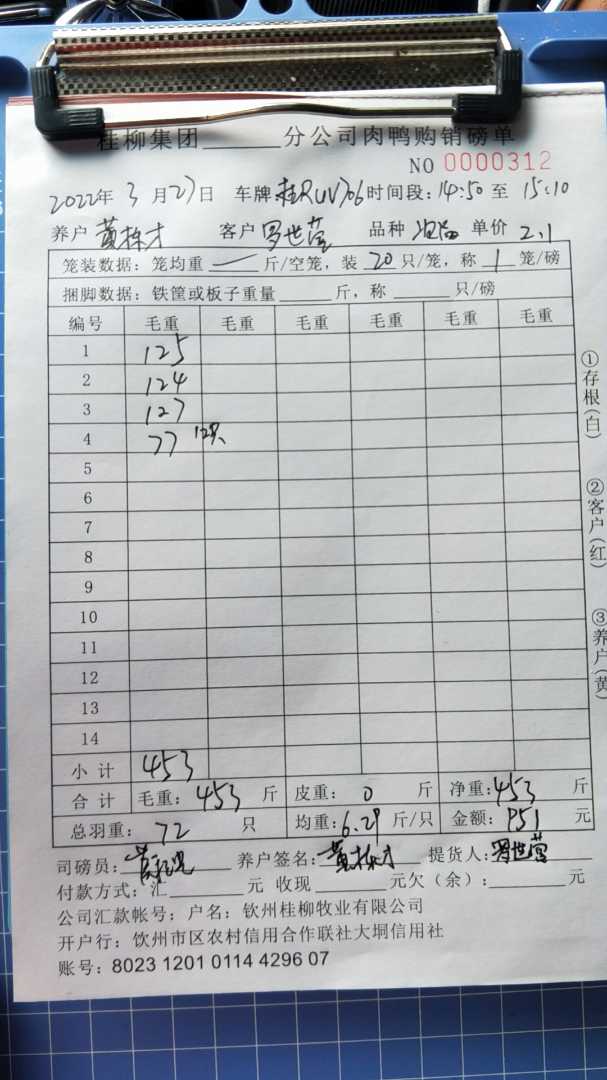 桂柳集团______分公司肉鸭购销磅单
NO 0000312
2022年 3月27日 车牌:桂RUV706 时间段:14:50至15:10
养户 黄栋才 客户 罗世莹 品种 单价 2.1
笼装数据:笼均重 — 斤/空笼,装 20 只/笼,称 1 笼/磅
捆脚数据:铁筐或板子重量______斤,称______只/磅
编号 毛重 毛重 毛重 毛重 毛重 毛重
1 125
2 124
3 127
4 77 12只
5
6
7
8
9
10
11
12
13
14
小计 453
合计 毛重:453斤 皮重:0斤 净重:453斤
总羽重:72只 均重:6.29斤/只 金额:951元
司磅员: 养户签名:黄栋才 提货人:罗世莹
付款方式:汇______元 收现______元欠(余):______元
公司汇款帐号:户名:钦州桂柳牧业有限公司
开户行:钦州市区农村信用合作联社大垌信用社
账号:8023 1201 0114 4296 07
①存根(白)
②客户(红)
③养户(黄)